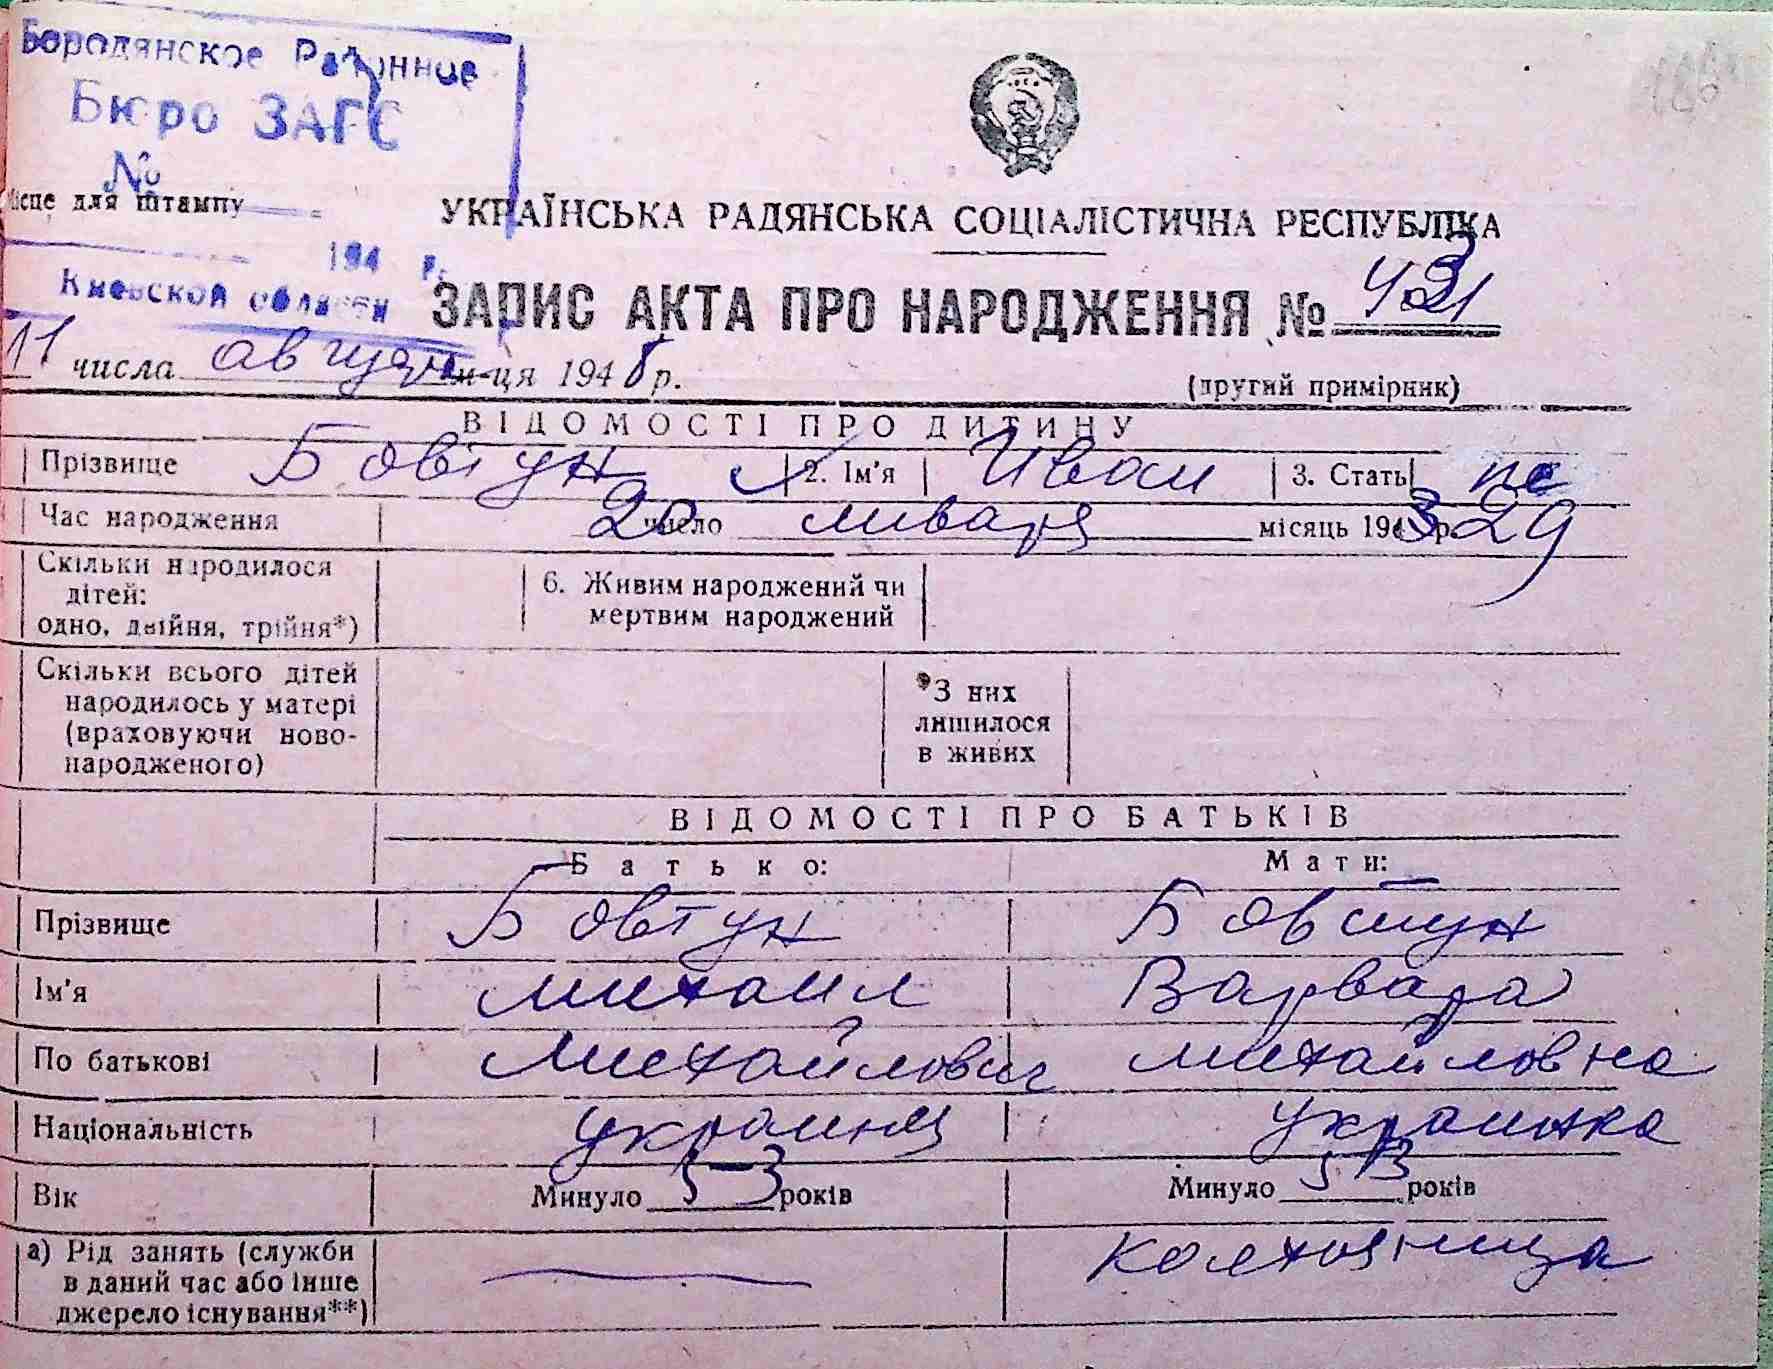 Бородянское Районное
Бюро ЗАГС
№
ісце для штампу
194 г.
Киевской области
УКРАЇНСЬКА РАДЯНСЬКА СОЦІАЛІСТИЧНА РЕСПУБЛІКА
ЗАПИС АКТА ПРО НАРОДЖЕННЯ №
11 числа августа м-ця 1948 р.
(другий примірник)
ВІДОМОСТІ ПРО ДИТИНУ
Прізвище Бовтун 2. Ім'я Иван 3. Стать
Час народження 20 число января місяць 194 р. 29
Скільки народилося дітей: одно, двійня, трійня*)
6. Живим народжений чи мертвим народжений
Скільки всього дітей народилось у матері (враховуючи ново-народженого)
З них лишилося в живих
ВІДОМОСТІ ПРО БАТЬКІВ
Батько: Мати:
Прізвище Бовтун Бовтун
Ім'я Михаил Варвара
По батькові Михайлович Михайловна
Національність украинец украинка
Вік Минуло 53 років Минуло 53 років
а) Рід занять (служби в даний час або інше джерело існування**) колхозница